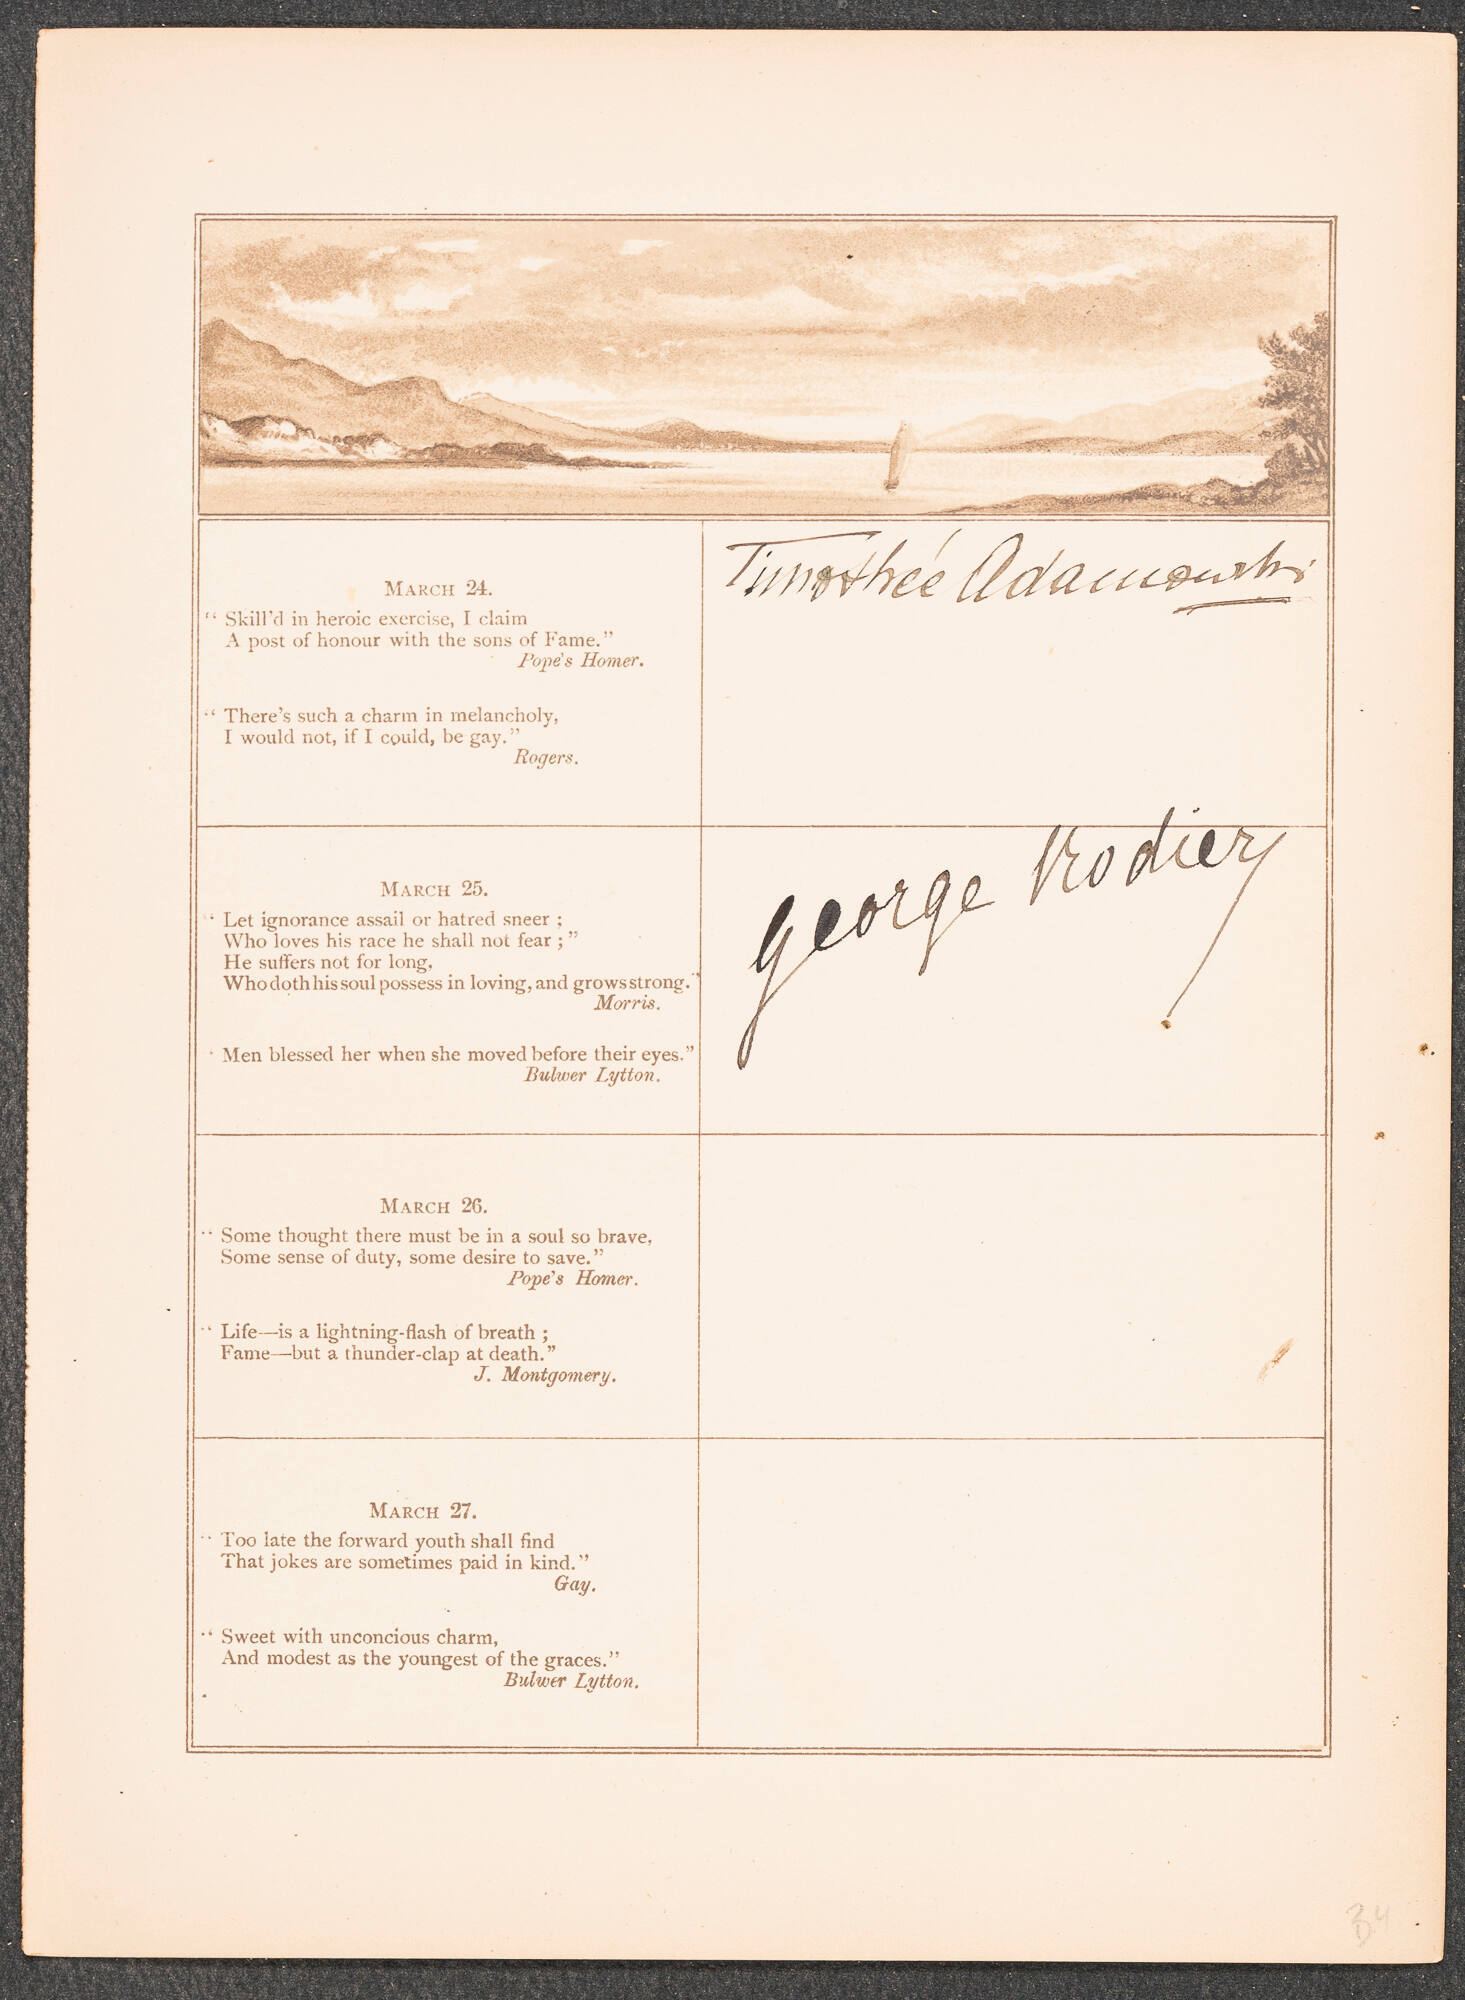 Timothée Adamowski
MARCH 24.
“ Skill'd in heroic exercise, I claim
A post of honour with the sons of Fame.”
Pope's Homer.
“ There's such a charm in melancholy,
I would not, if I could, be gay.”
Rogers.
George Rodier
MARCH 25.
“ Let ignorance assail or hatred sneer ;
Who loves his race he shall not fear ; ”
He suffers not for long,
Who doth his soul possess in loving, and grows strong.”
Morris.
“ Men blessed her when she moved before their eyes.”
Bulwer Lytton.
MARCH 26.
“ Some thought there must be in a soul so brave,
Some sense of duty, some desire to save.”
Pope's Homer.
“ Life—is a lightning-flash of breath ;
Fame—but a thunder-clap at death.”
J. Montgomery.
MARCH 27.
“ Too late the forward youth shall find
That jokes are sometimes paid in kind.”
Gay.
“ Sweet with unconcious charm,
And modest as the youngest of the graces.”
Bulwer Lytton.